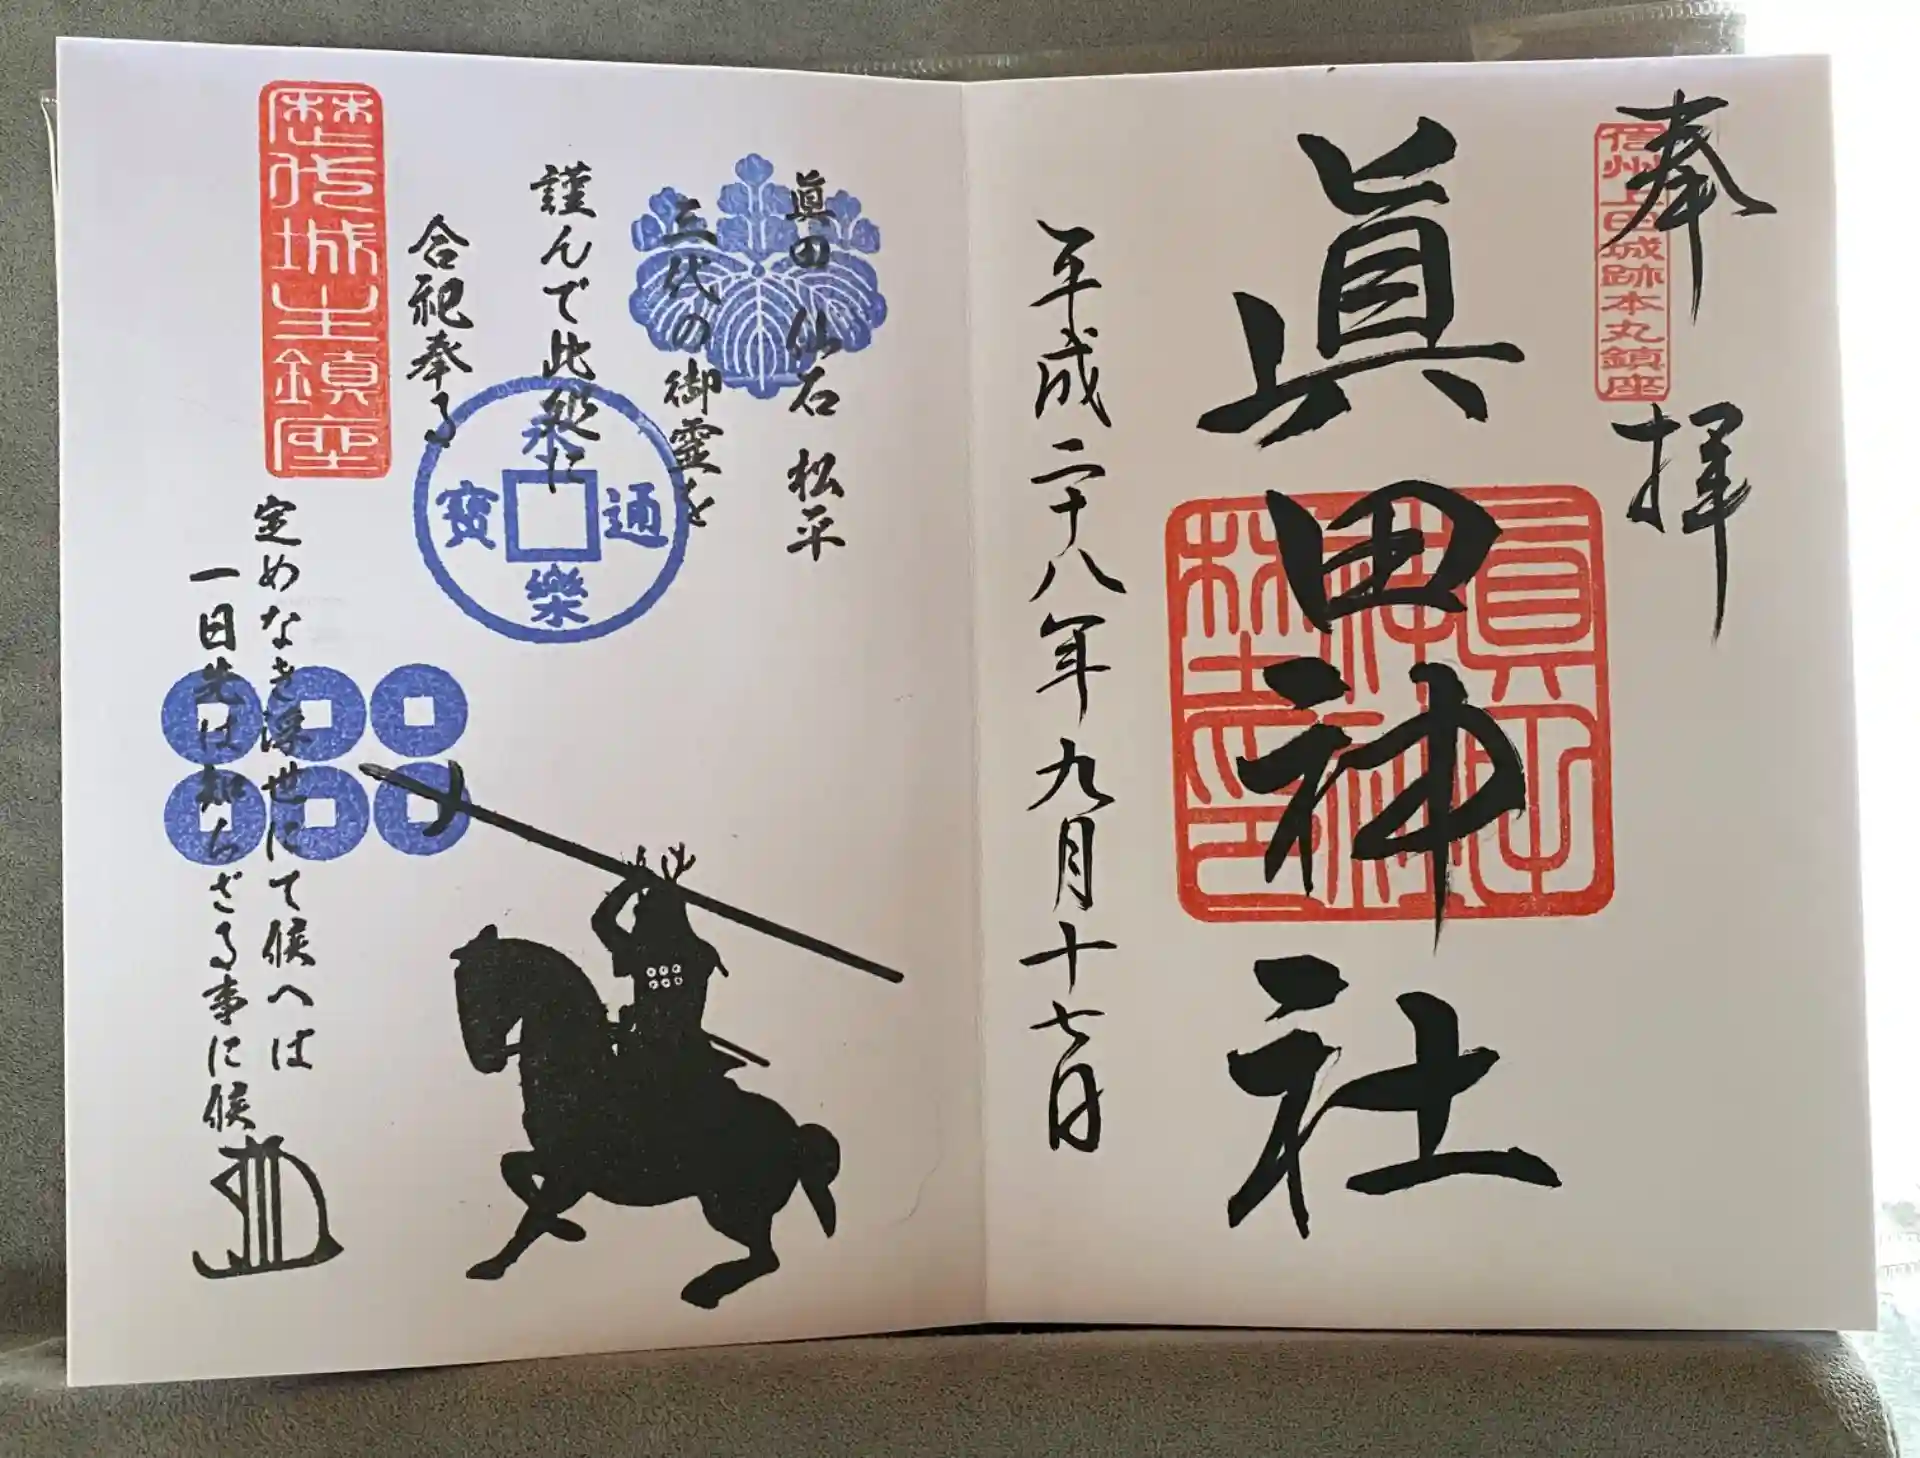 奉拝
信州上田城跡本丸鎮座
眞田神社
平成二十八年九月十七日
眞田 仙石 松平
三代の御霊を
謹んで此処に
合祀奉る
永樂通寳
歴代城主鎮座
定めなき浮世にて候へは
一日先は知らざる事に候